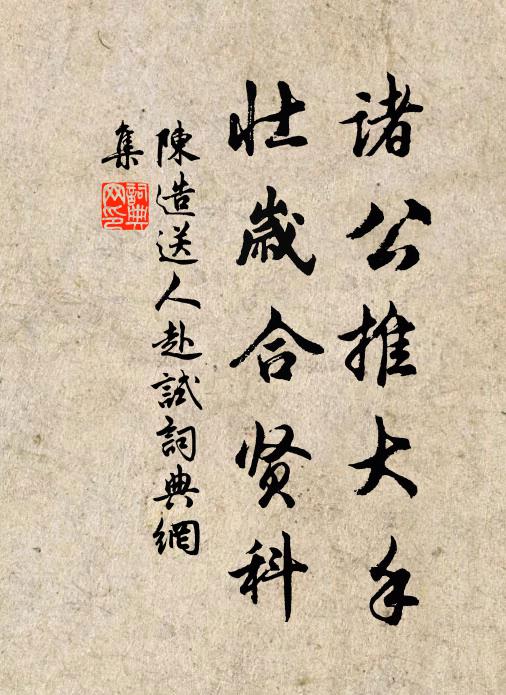 诸公推大手
壮岁合贤科
陳造送人赴試詞典網
集
詞典
网印